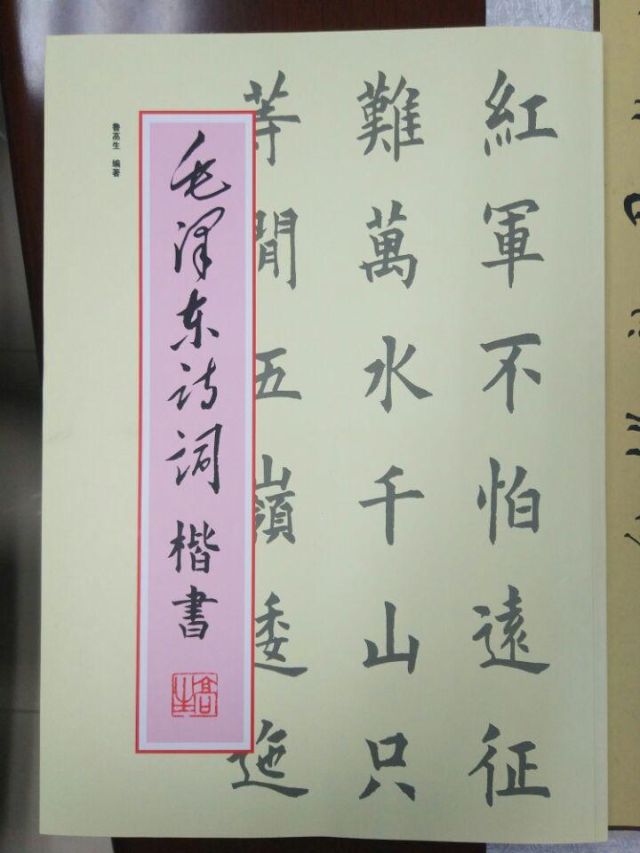 紅軍不怕遠征
難萬水千山只
等閒五嶺逶迤
毛泽东诗词 楷書
高生
鲁高生 编著